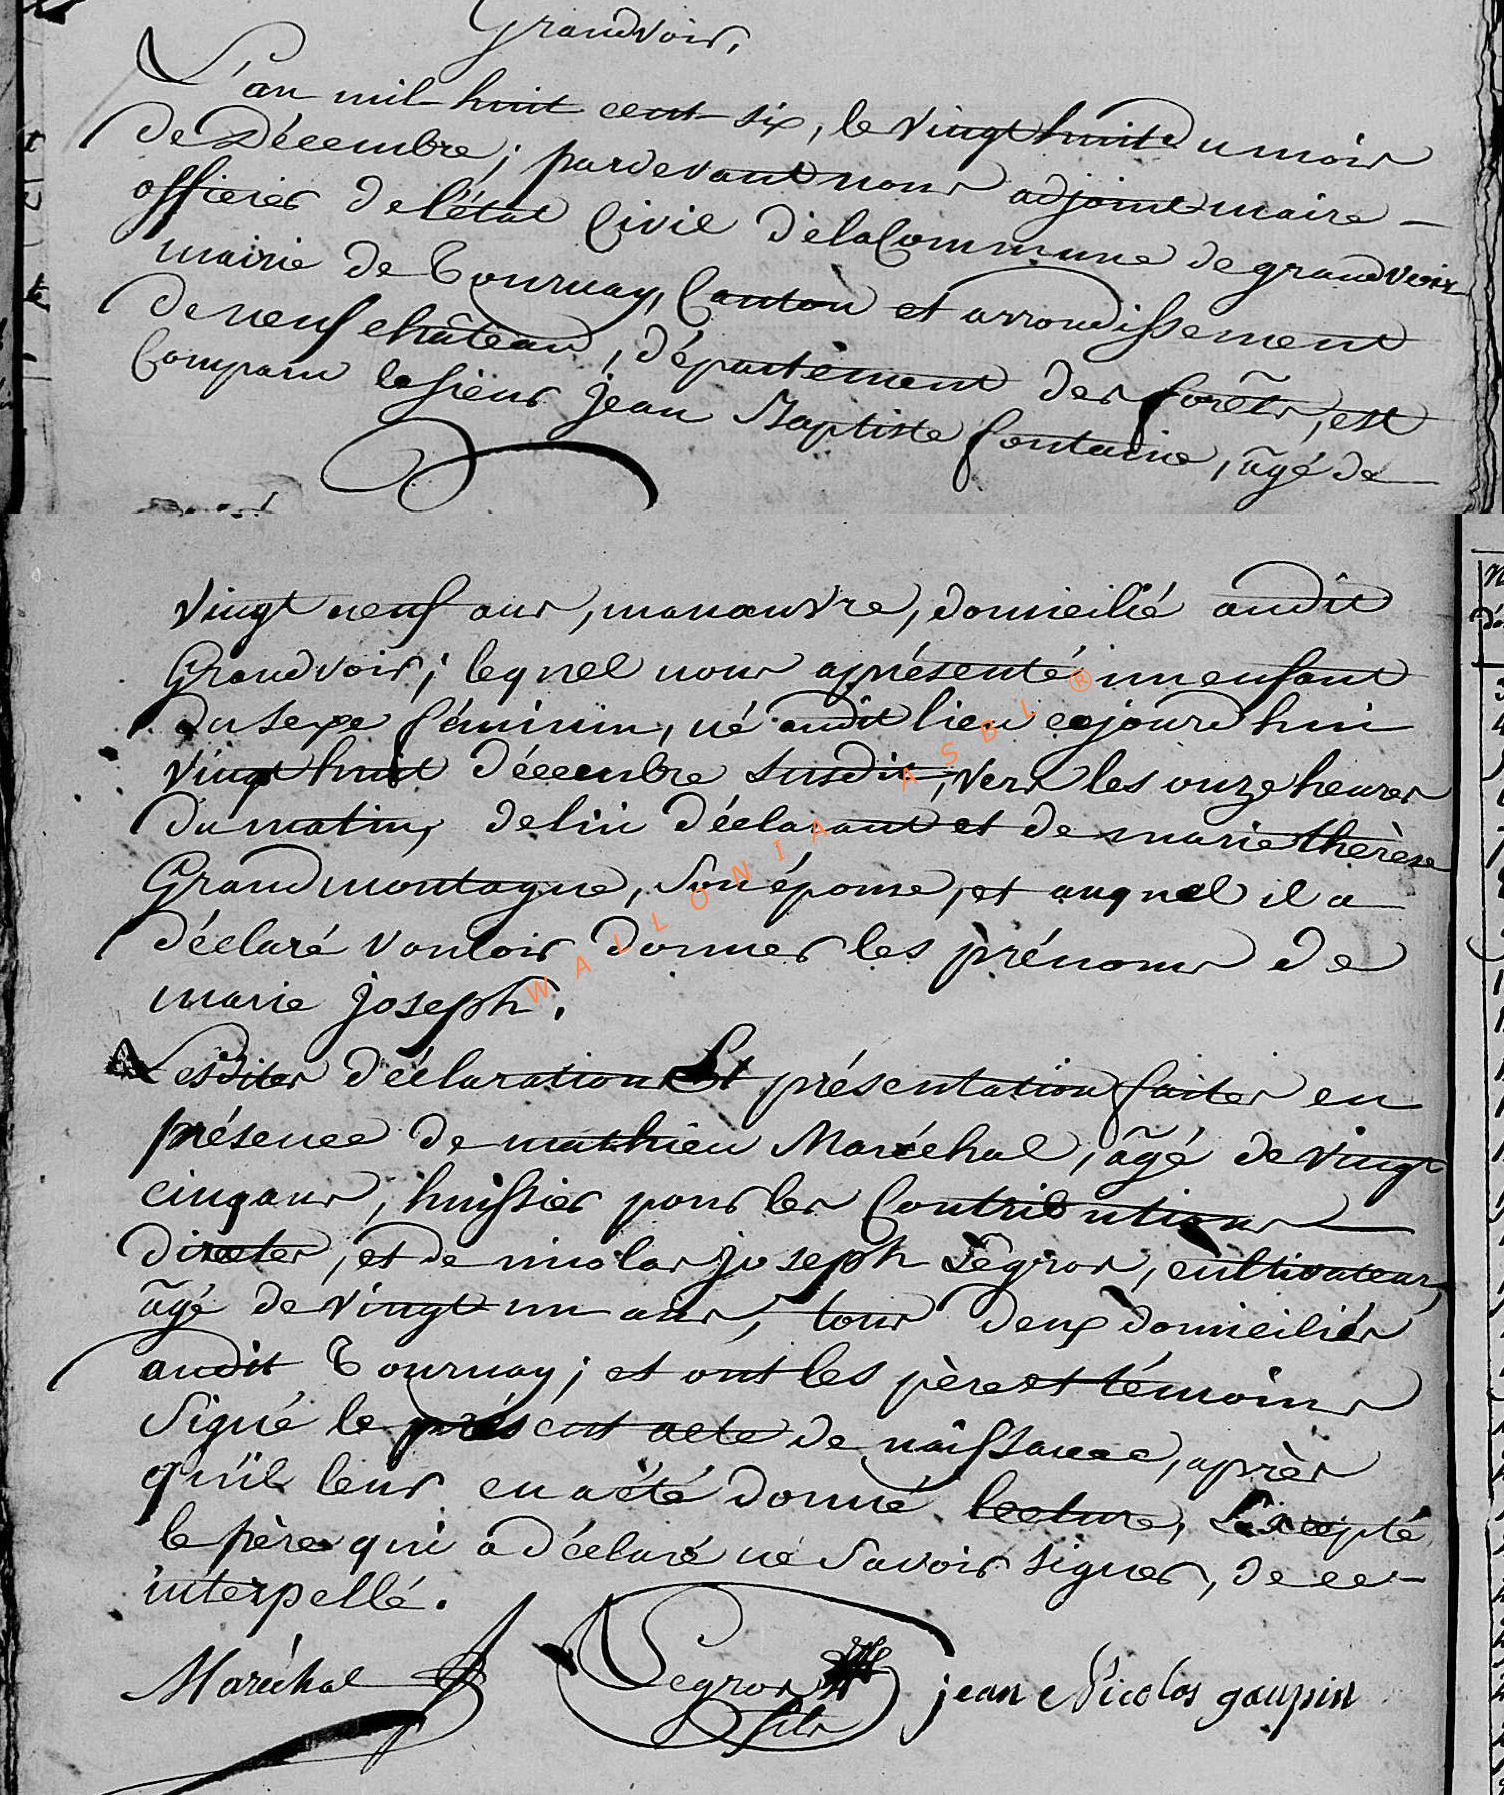 Grandvoir,
L'an mil huit cent six, le vingt huit du mois
de Décembre; pardevant nous adjoint maire
officier de l'état Civil de la Commune de grandvoir
mairie de Tournay, Canton et arrondissement
de neufchâteau, département des forêts, est
Comparu le sieur jean Baptiste fontaine, âgé de
vingt neuf ans, manœuvre, domicilié audit
Grandvoir; lequel nous a présenté un enfant
du sexe féminin, né audit lieu cejourd'hui
vingt huit décembre susdit, vers les onze heures
du matin, de lui déclarant et de marie thérèse
Grandmontagne, son épouse, et auquel il a
déclaré vouloir donner les prénoms de
marie joseph.
Lesdites déclaration Et présentation faites en
présence de mathieu Maréchal, âgé de vingt
cinq ans, huissier pour les Contributions
directes, et de nicolas joseph Legros, cultivateur,
âgé de vingt un ans, tous deux domiciliés
audit Tournay; et ont les père et témoins
signé le présent acte de naissance, après
qu'il leur en a été donné lecture, Excepté
le père qui a déclaré ne savoir signer, de ce
interpellé.
Maréchal Legros fils jean Nicolas goupin
WALLONIA ASBL ®